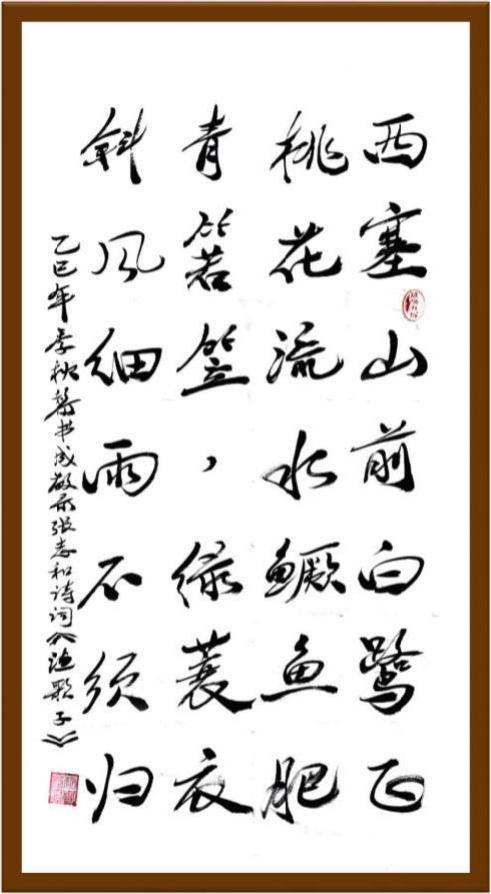 西塞山前白鹭飞
桃花流水鳜鱼肥
青箬笠，绿蓑衣
斜风细雨不须归
乙巳年季秋 书 张志和诗词《渔歌子》